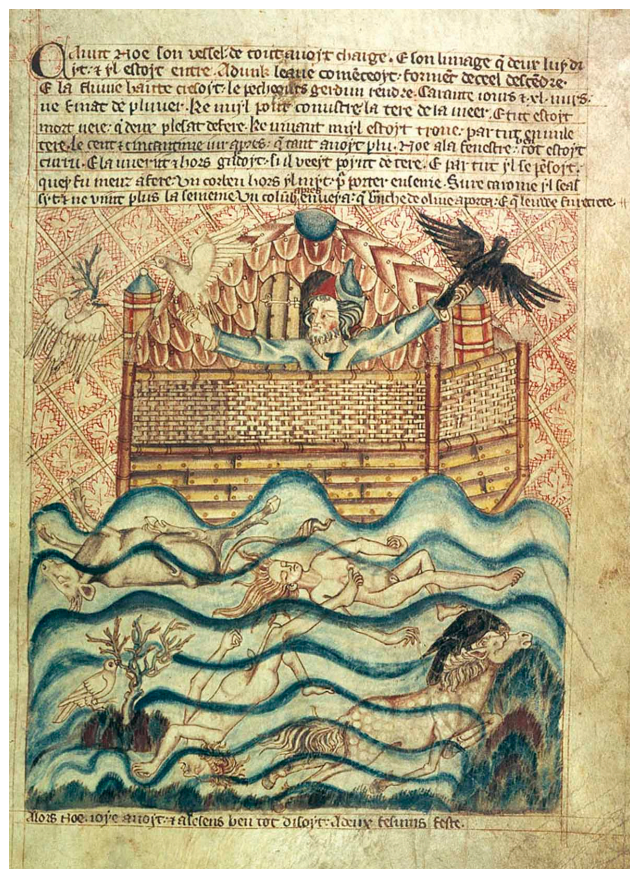 Quant Noe son vessel de tout auoyt charge. E son linage q deux luy di
yt. & yl estoyt entre. Adunk leaue comēceoyt. de ceel descēdre.
E la fluuie hautte cresoyt. le gerdun rendre. Caraunte iours & xl. nuys.
ne finat de pluuier. Ke nuyl pout conustre. la tere de la meer. E tut estoyt
mort. q deux plesat de fere. Ke uiuant nuyl estoyt troue. par tut en nule
tere. Le cent & cincantime iur apres. q tant auoyt plu. Noe ala fenestre. tot estoyt
E la uuerit & hors gardoyt. si il veeyt poynt de tere. E par tut yl se pēsoyt.
quey fu meuz a fere. Un corbeu hors yl myt. p porter enseine. Sure caronie yl seal
syt. & ne vint plus la semeine. Un colūb apres enueya. q brāche de oliue aporta. E q leuwe est retrete
Alors Noe ioye auoyt. & a lesens ben tot disoyt. A deux fesums feste.